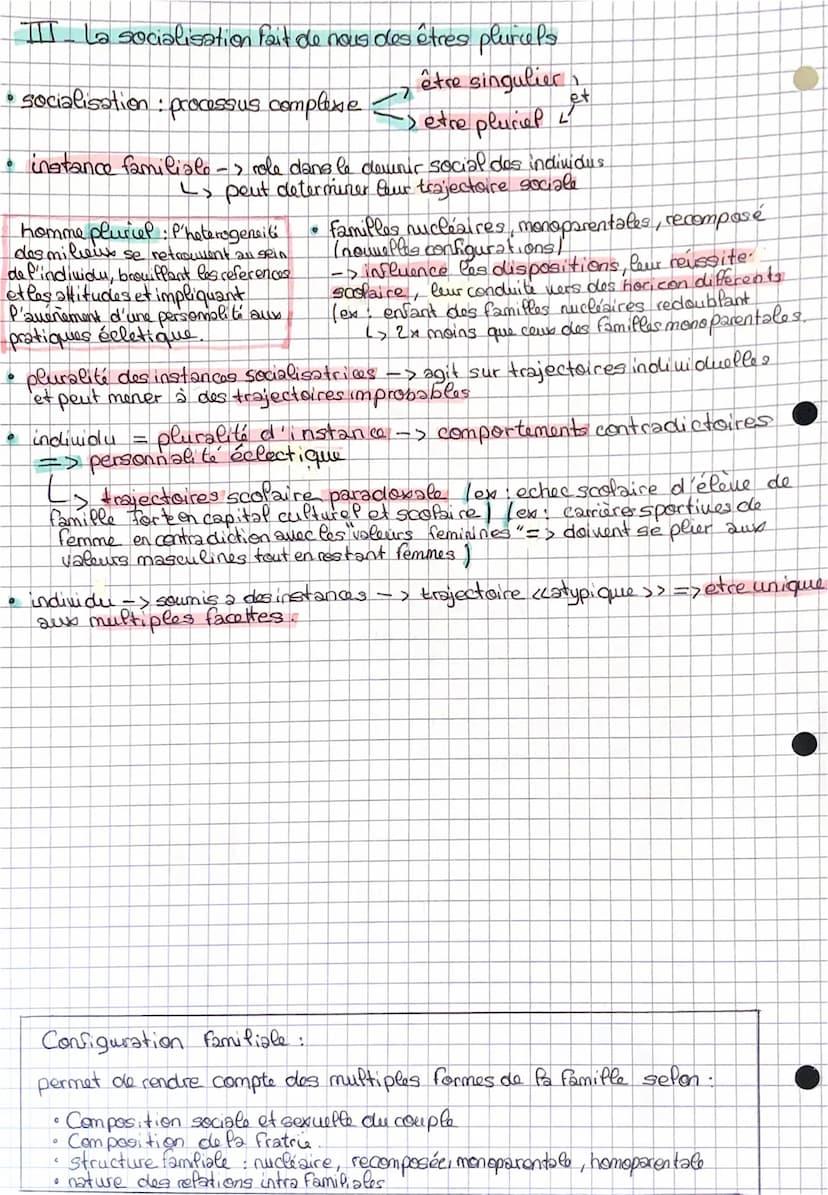 III - La socialisation fait de nous des êtres pluriels
• socialisation : processus complexe
-> être singulier
et
-> etre pluriel
• instance familiale -> role dans le devenir social des individus
↳ peut determiner leur trajectoire sociale
homme pluriel : l'heterogeneité
des milieux se retrouvent au sein
de l'individu, brouillant les references
et les attitudes et impliquant
l'avènement d'une personnalité aux
pratiques écletique.
• familles nucléaires, monoparentales, recomposé
(nouvelles configurations)
-> influence les dispositions, leur réussite
scolaire, leur conduite vers des horizon différents
(ex : enfant des familles nucléaires redoublant
↳ 2x moins que ceux des familles monoparentales.
• pluralité des instances socialisatrices -> agit sur trajectoires individuelles
et peut mener à des trajectoires improbables
• individu = pluralité d'instance -> comportements contradictoires
=> personnalité éclectique
↳ trajectoires scolaire paradoxale (ex : echec scolaire d'élève de
famille fort en capital culturel et scolaire) (ex : carrières sportives de
femme en contradiction avec les "valeurs feminines" => doivent se plier aux
valeurs masculines tout en restant femmes)
• individu -> soumis a des instances -> trajectoire <<atypique>> => etre unique
aux multiples facettes.
Configuration familiale :
permet de rendre compte des multiples formes de la famille selon :
• Composition sociale et sexuelle du couple
• Composition de la fratrie.
• structure familiale : nucléaire, recomposée, monoparentale, homoparentale
• nature des relations intra familiales